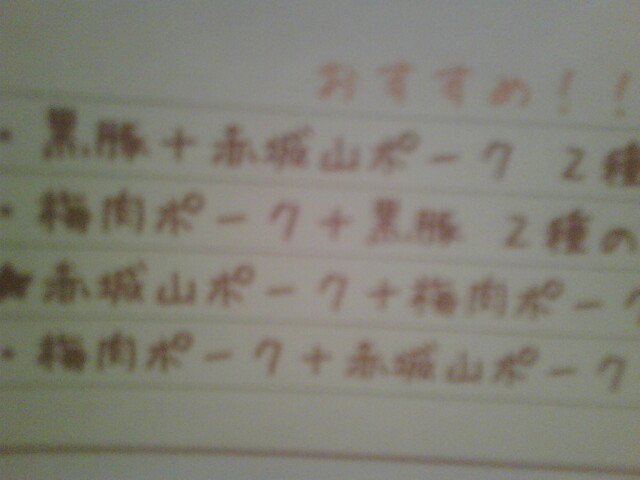 おすすめ！！
・黒豚＋赤城山ポーク 2種
・梅肉ポーク＋黒豚 2種の
★赤城山ポーク＋梅肉ポーク
・梅肉ポーク＋赤城山ポーク